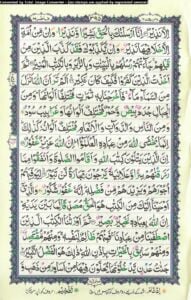 Converted by Total Image Converter - (no stamps are applied by registered version)
اِلَّا نَذِيْرٌ اِنَّاۤ اَرْسَلْنٰكَ بِالْحَقِّ بَشِيْرًا وَّنَذِيْرًا وَاِنْ مِّنْ اُمَّةٍ
اِلَّا خَلَا فِيْهَا نَذِيْرٌ وَاِنْ يُّكَذِّبُوْكَ فَقَدْ كَذَّبَ الَّذِيْنَ مِنْ
قَبْلِهِمْ جَآءَتْهُمْ رُسُلُهُمْ بِالْبَيِّنٰتِ وَبِالزُّبُرِ وَبِالْكِتٰبِ الْمُنِيْرِ ثُمَّ
اَخَذْتُ الَّذِيْنَ كَفَرُوْا فَكَيْفَ كَانَ نَكِيْرِ اَلَمْ تَرَ اَنَّ اللّٰهَ اَنْزَلَ
مِنَ السَّمَآءِ مَآءً فَاَخْرَجْنَا بِهٖ ثَمَرٰتٍ مُّخْتَلِفًا اَلْوَانُهَا وَمِنَ
الْجِبَالِ جُدَدٌۢ بِيْضٌ وَّحُمْرٌ مُّخْتَلِفٌ اَلْوَانُهَا وَغَرَابِيْبُ سُوْدٌ
وَمِنَ النَّاسِ وَالدَّوَآبِّ وَالْاَنْعَامِ مُخْتَلِفٌ اَلْوَانُهٗ كَذٰلِكَ
اِنَّمَا يَخْشَى اللّٰهَ مِنْ عِبَادِهِ الْعُلَمٰٓؤُا اِنَّ اللّٰهَ عَزِيْزٌ غَفُوْرٌ اِنَّ
الَّذِيْنَ يَتْلُوْنَ كِتٰبَ اللّٰهِ وَاَقَامُوا الصَّلٰوةَ وَاَنْفَقُوْا مِمَّا
رَزَقْنٰهُمْ سِرًّا وَّعَلَانِيَةً يَّرْجُوْنَ تِجَارَةً لَّنْ تَبُوْرَ لِيُوَفِّيَهُمْ
اُجُوْرَهُمْ وَيَزِيْدَهُمْ مِّنْ فَضْلِهٖ اِنَّهٗ غَفُوْرٌ شَكُوْرٌ وَالَّذِيْۤ
اَوْحَيْنَاۤ اِلَيْكَ مِنَ الْكِتٰبِ هُوَ الْحَقُّ مُصَدِّقًا لِّمَا بَيْنَ يَدَيْهِ
اِنَّ اللّٰهَ بِعِبَادِهٖ لَخَبِيْرٌۢ بَصِيْرٌ ثُمَّ اَوْرَثْنَا الْكِتٰبَ الَّذِيْنَ
اصْطَفَيْنَا مِنْ عِبَادِنَا فَمِنْهُمْ ظَالِمٌ لِّنَفْسِهٖ وَمِنْهُمْ مُّقْتَصِدٌ
وَمِنْهُمْ سَابِقٌۢ بِالْخَيْرٰتِ بِاِذْنِ اللّٰهِ ذٰلِكَ هُوَ الْفَضْلُ الْكَبِيْرُ
جَنّٰتُ عَدْنٍ يَّدْخُلُوْنَهَا يُحَلَّوْنَ فِيْهَا مِنْ اَسَاوِرَ مِنْ ذَهَبٍ